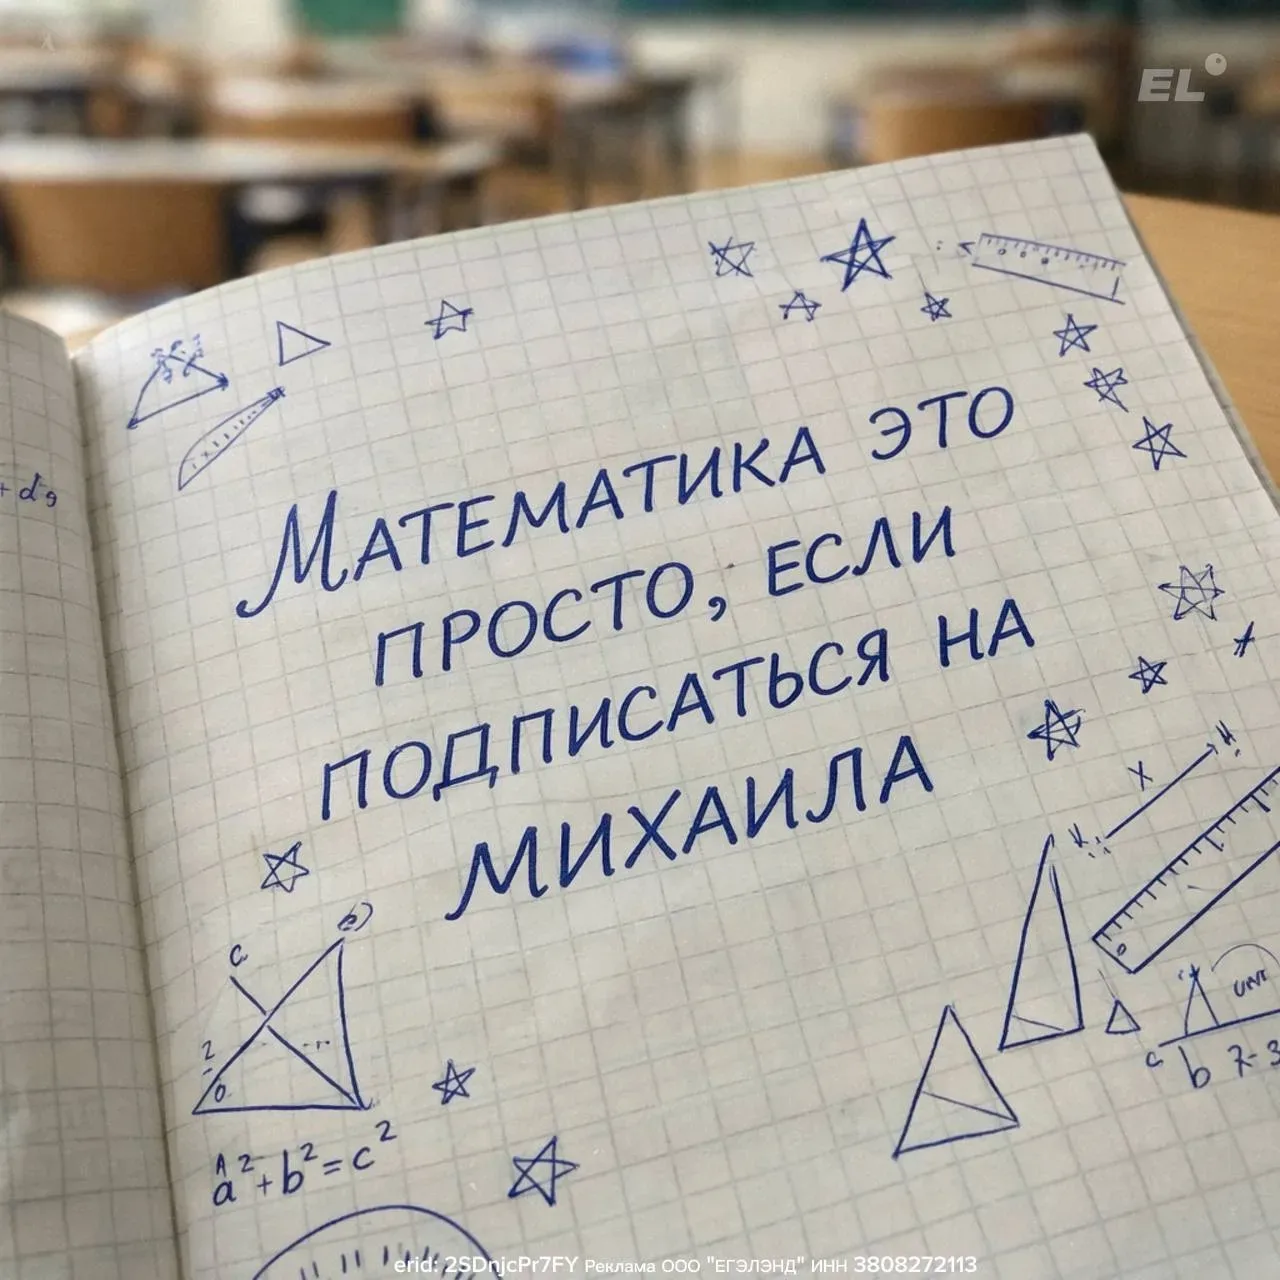 EL
+ d²g
МАТЕМАТИКА ЭТО
ПРОСТО, ЕСЛИ
ПОДПИСАТЬСЯ НА
МИХАИЛА
x
c
2
0
a²+b²=c²
0
c
b 7-3
erid: 2SDnjcPr7FY Реклама ООО "ЕГЭЛЭНД" ИНН 3808272113